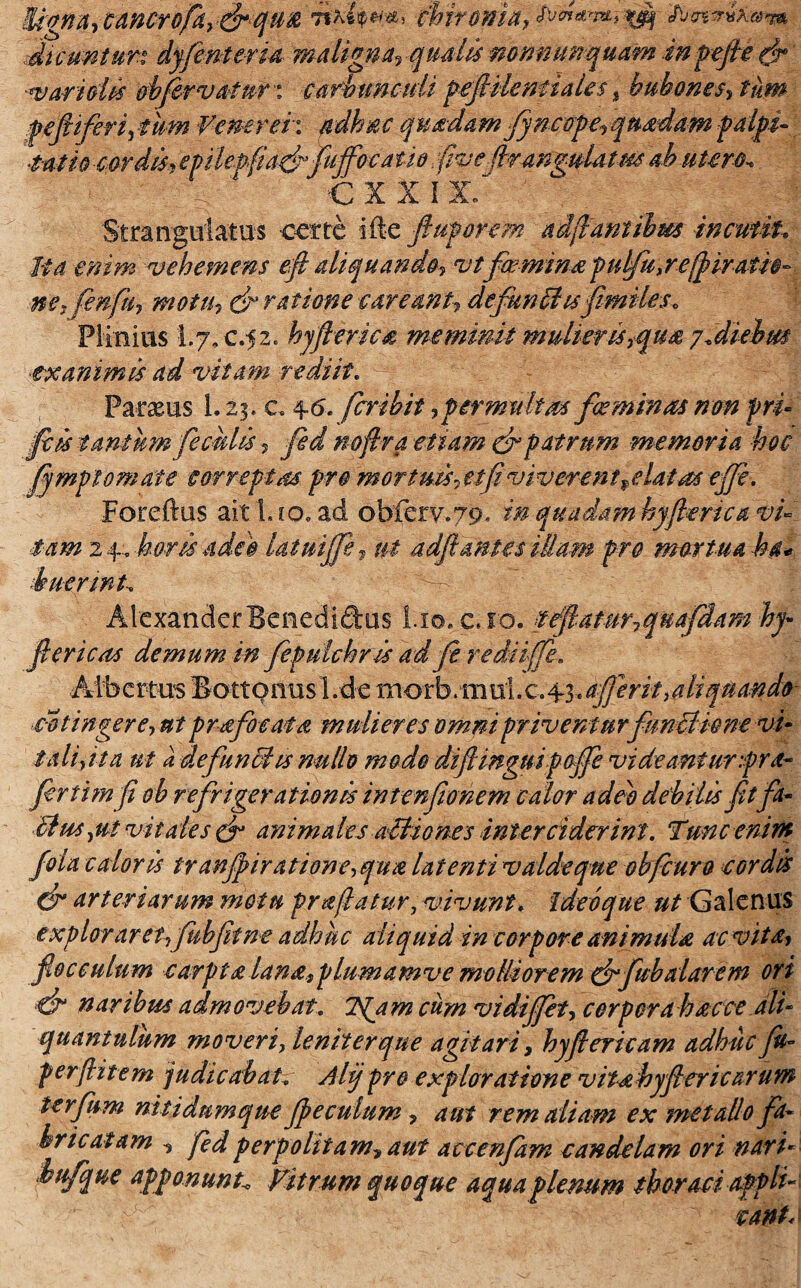 ligna, cancrosa, & quæ chironia,
dicuntur: dysenteria maligna, qualis nonnunquam in peste &
variolis observatur: carbunculi pestilentiales, bubones, tùm
pestiferi, tùm Venerei: adhæc quædam syncope, quædam palpi-
tatio cordis, epilepsia & suffocatio sive strangulatus ab utero.
CXXIX.
Strangulatus certè iste stuporem adstantibus incutit.
Ita enim vehemens est aliquando, vt fœminæ pulsu, respiratio-
ne, sensu, motu, & ratione careant, defunctis similes.
Plinius l.7. c.52. hystericæ meminit mulieris, quæ 7. diebus
exanimis ad vitam rediit.
Paræus l. 23. c. 46. scribit, permultas fœminas non pri-
scis tantùm seculis, sed nostra etiam & patrum memoria hoc
symptomate correptas pro mortuis, etsi viverent, elatas esse.
Forestus ait l. 10. ad observ. 79. in quadam hysterica vi-
tam 24. horis adeò latuisse, ut adstantes illam pro mortua ha-
buerint.
Alexander Benedictus l.10. c.10. testatur, quasdam hy-
stericas demum in sepulchris ad se rediisse.
Albertus Bottonus l.de morb. mul. c.43. asserit, aliquando
cōtingere, ut præfocatæ mulieres omni priventur functione vi-
tali, ita ut à defunctis nullo modo distingui posse videantur: præ-
sertim si ob refrigerationis intensionem calor adeò debilis sit fa-
ctus, ut vitales & animales actiones interciderint. Tunc enim
sola caloris transpiratione, quæ latenti valdeque obscuro cordis
& arteriarum motu præstatur, vivunt. Ideòque ut Galenus
exploraret, subsitne adhuc aliquid in corpore animulæ ac vitæ,
flocculum carptæ lanæ, plumamve molliorem & subalarem ori
& naribus admovebat. Nam cùm vidisset, corpora hæcce ali-
quantulùm moveri, leniterque agitari, hystericam adhùc su-
perstitem judicabat. Alij pro exploratione vitæ hystericarum
tersum nitidumque speculum, aut rem aliam ex metallo fa-
bricatam, sed perpolitam, aut accensam candelam ori nari-
busque apponunt. Vitrum quoque aqua plenum thoraci appli-
cant.